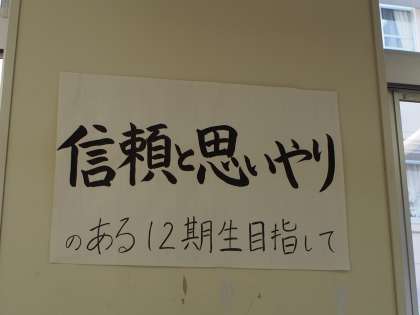 信頼と思いやり
のある12期生目指して